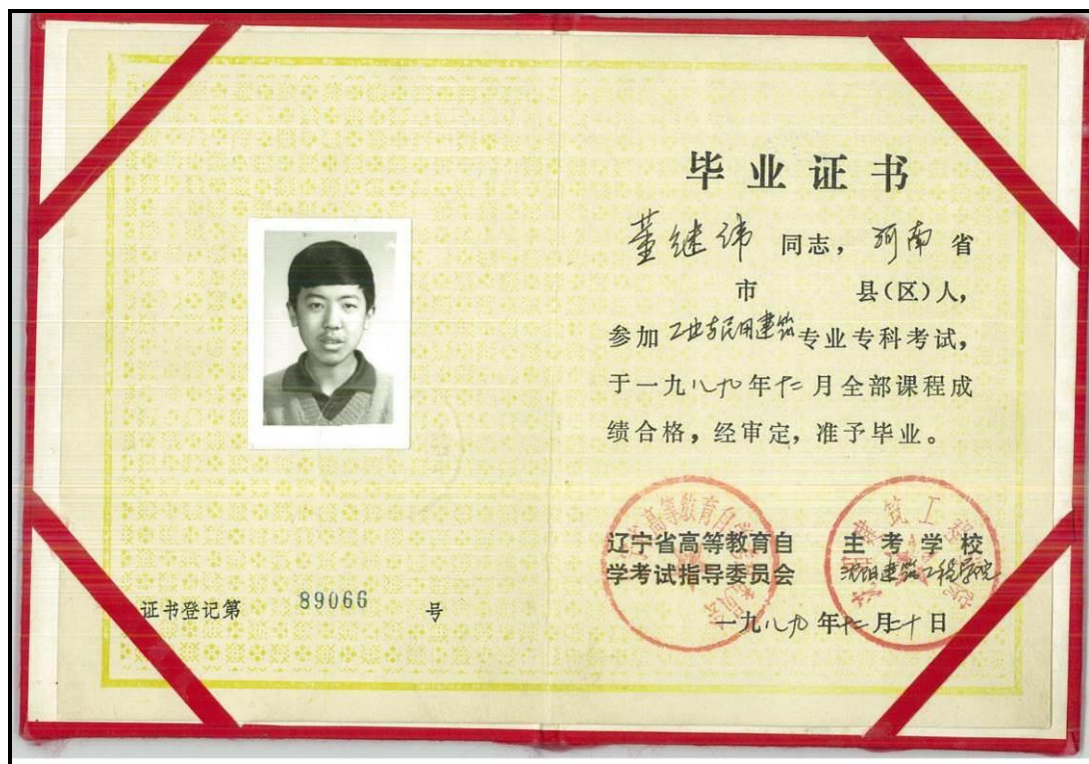 证书登记第 89066 号
毕业证书
董继伟 同志，河南省
市 县(区)人，
参加工业与民用建筑专业专科考试，
于一九八九年十二月全部课程成
绩合格，经审定，准予毕业。
辽宁省高等教育自
学考试指导委员会
主考学校
沈阳建筑工程学院
一九八九年十二月三十日